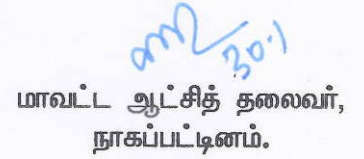 30.1
மாவட்ட ஆட்சித் தலைவர்,
நாகப்பட்டினம்.